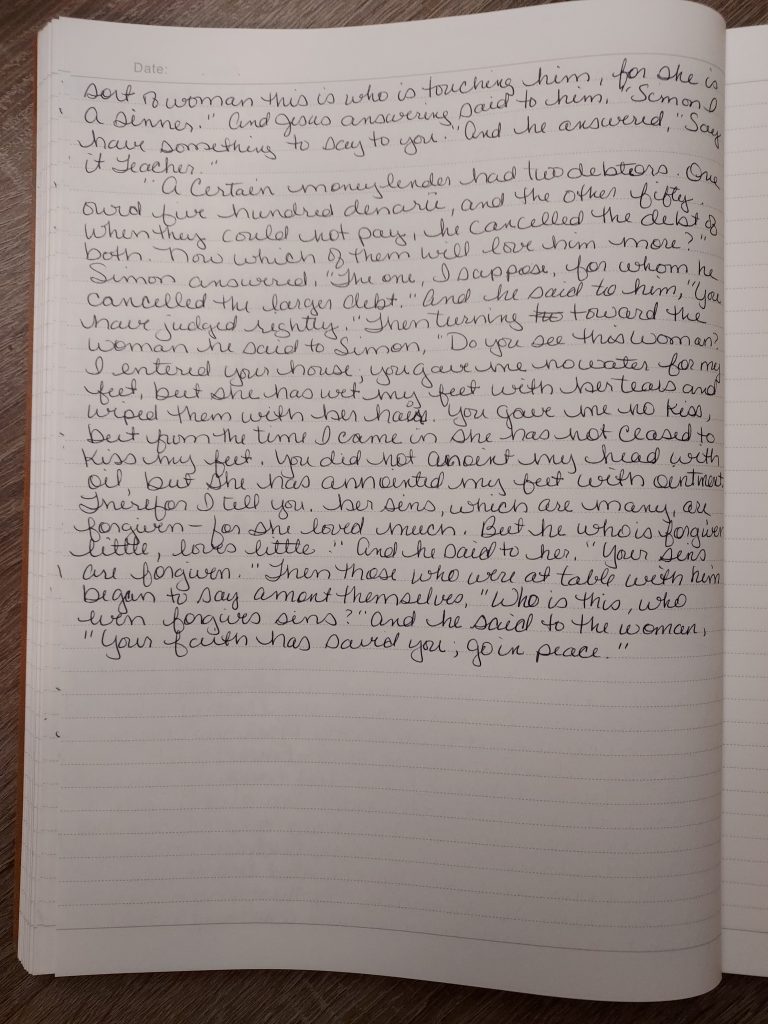 Date:
sort of woman this is who is touching him, for she is
a sinner." And Jesus answering said to him, "Simon I
have something to say to you." And he answered, "Say
it Teacher."
"A certain moneylender had two debtors. One
owed five hundred denarii, and the other fifty.
When they could not pay, he cancelled the debt of
both. Now which of them will love him more?"
Simon answered, "The one, I suppose, for whom he
cancelled the larger debt." And he said to him, "You
have judged rightly." Then turning to toward the
woman he said to Simon, "Do you see this woman?
I entered your house; you gave me no water for my
feet, but she has wet my feet with her tears and
wiped them with her hair. You gave me no kiss,
but from the time I came in she has not ceased to
kiss my feet. You did not anoint my head with
oil, but she has annointed my feet with ointment
Therefor I tell you. her sins, which are many, are
forgiven - for she loved much. But he who is forgiven
little, loves little." And he said to her, "Your sins
are forgiven." Then those who were at table with him
began to say amont themselves, "Who is this, who
even forgives sins?" And he said to the woman,
"Your faith has saved you; go in peace."